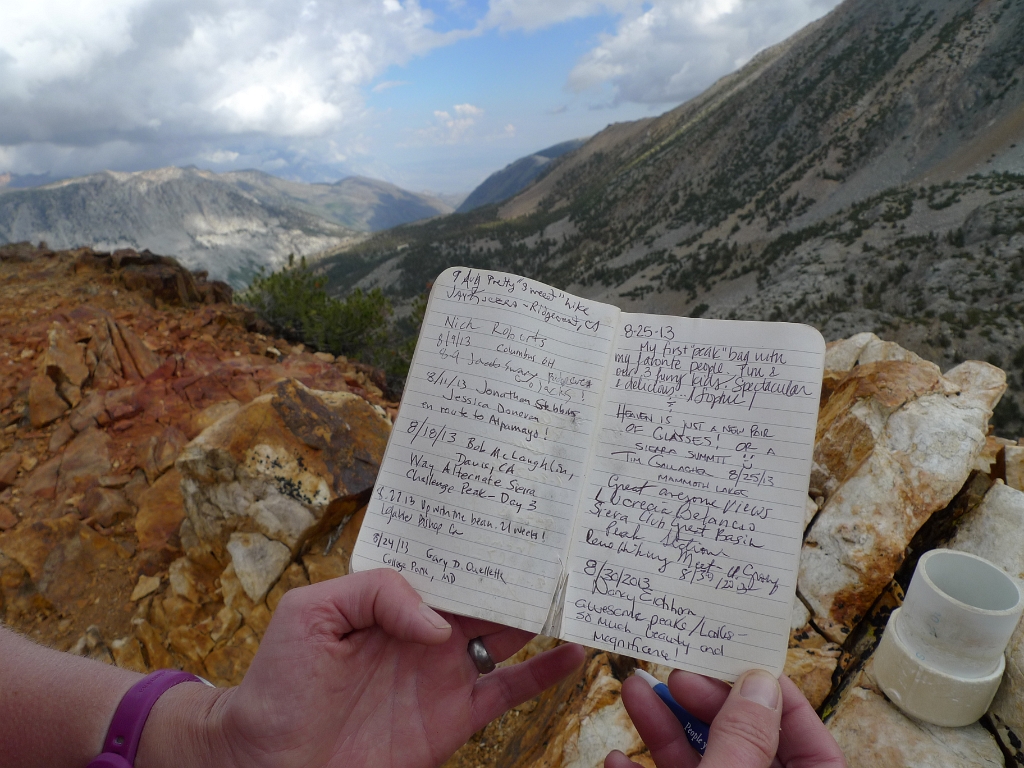 9 Aug Pretty "3 meet" hike
- Ridgecrest, CA
Nich Roberts
8/9/13 Columbus OH
8-9
8/11/13 Jonathan Stebbins
Jessica Donovan
en route to Alpamayo!
8/18/13 Bob McLaughlin,
Davis, CA
Way Alternate Sierra
Challenge Peak - Day 3
8.22.13 Up with the bean. 21 weeks!
Bishop Ca
8/24/13 Gary D. Ouellette
College Park, MD
8-25-13
My first "peak" bag with
my favorite people, Tim &
our 3 furry kids. Spectacular
& delicious. Sophie
Heaven is just a new pair
of glasses! or a
Sierra summit!!
Tim Gallagher 8/25/13
Mammoth Lakes
Great awesome views
Lucrecia Betancus
Sierra Club Great Basin
Peak Section
Meet up Group
8/30/2013
8/30/2013
Nancy Eichhorn
awesome peaks/Lakes -
so much beauty and
magnificence!
People